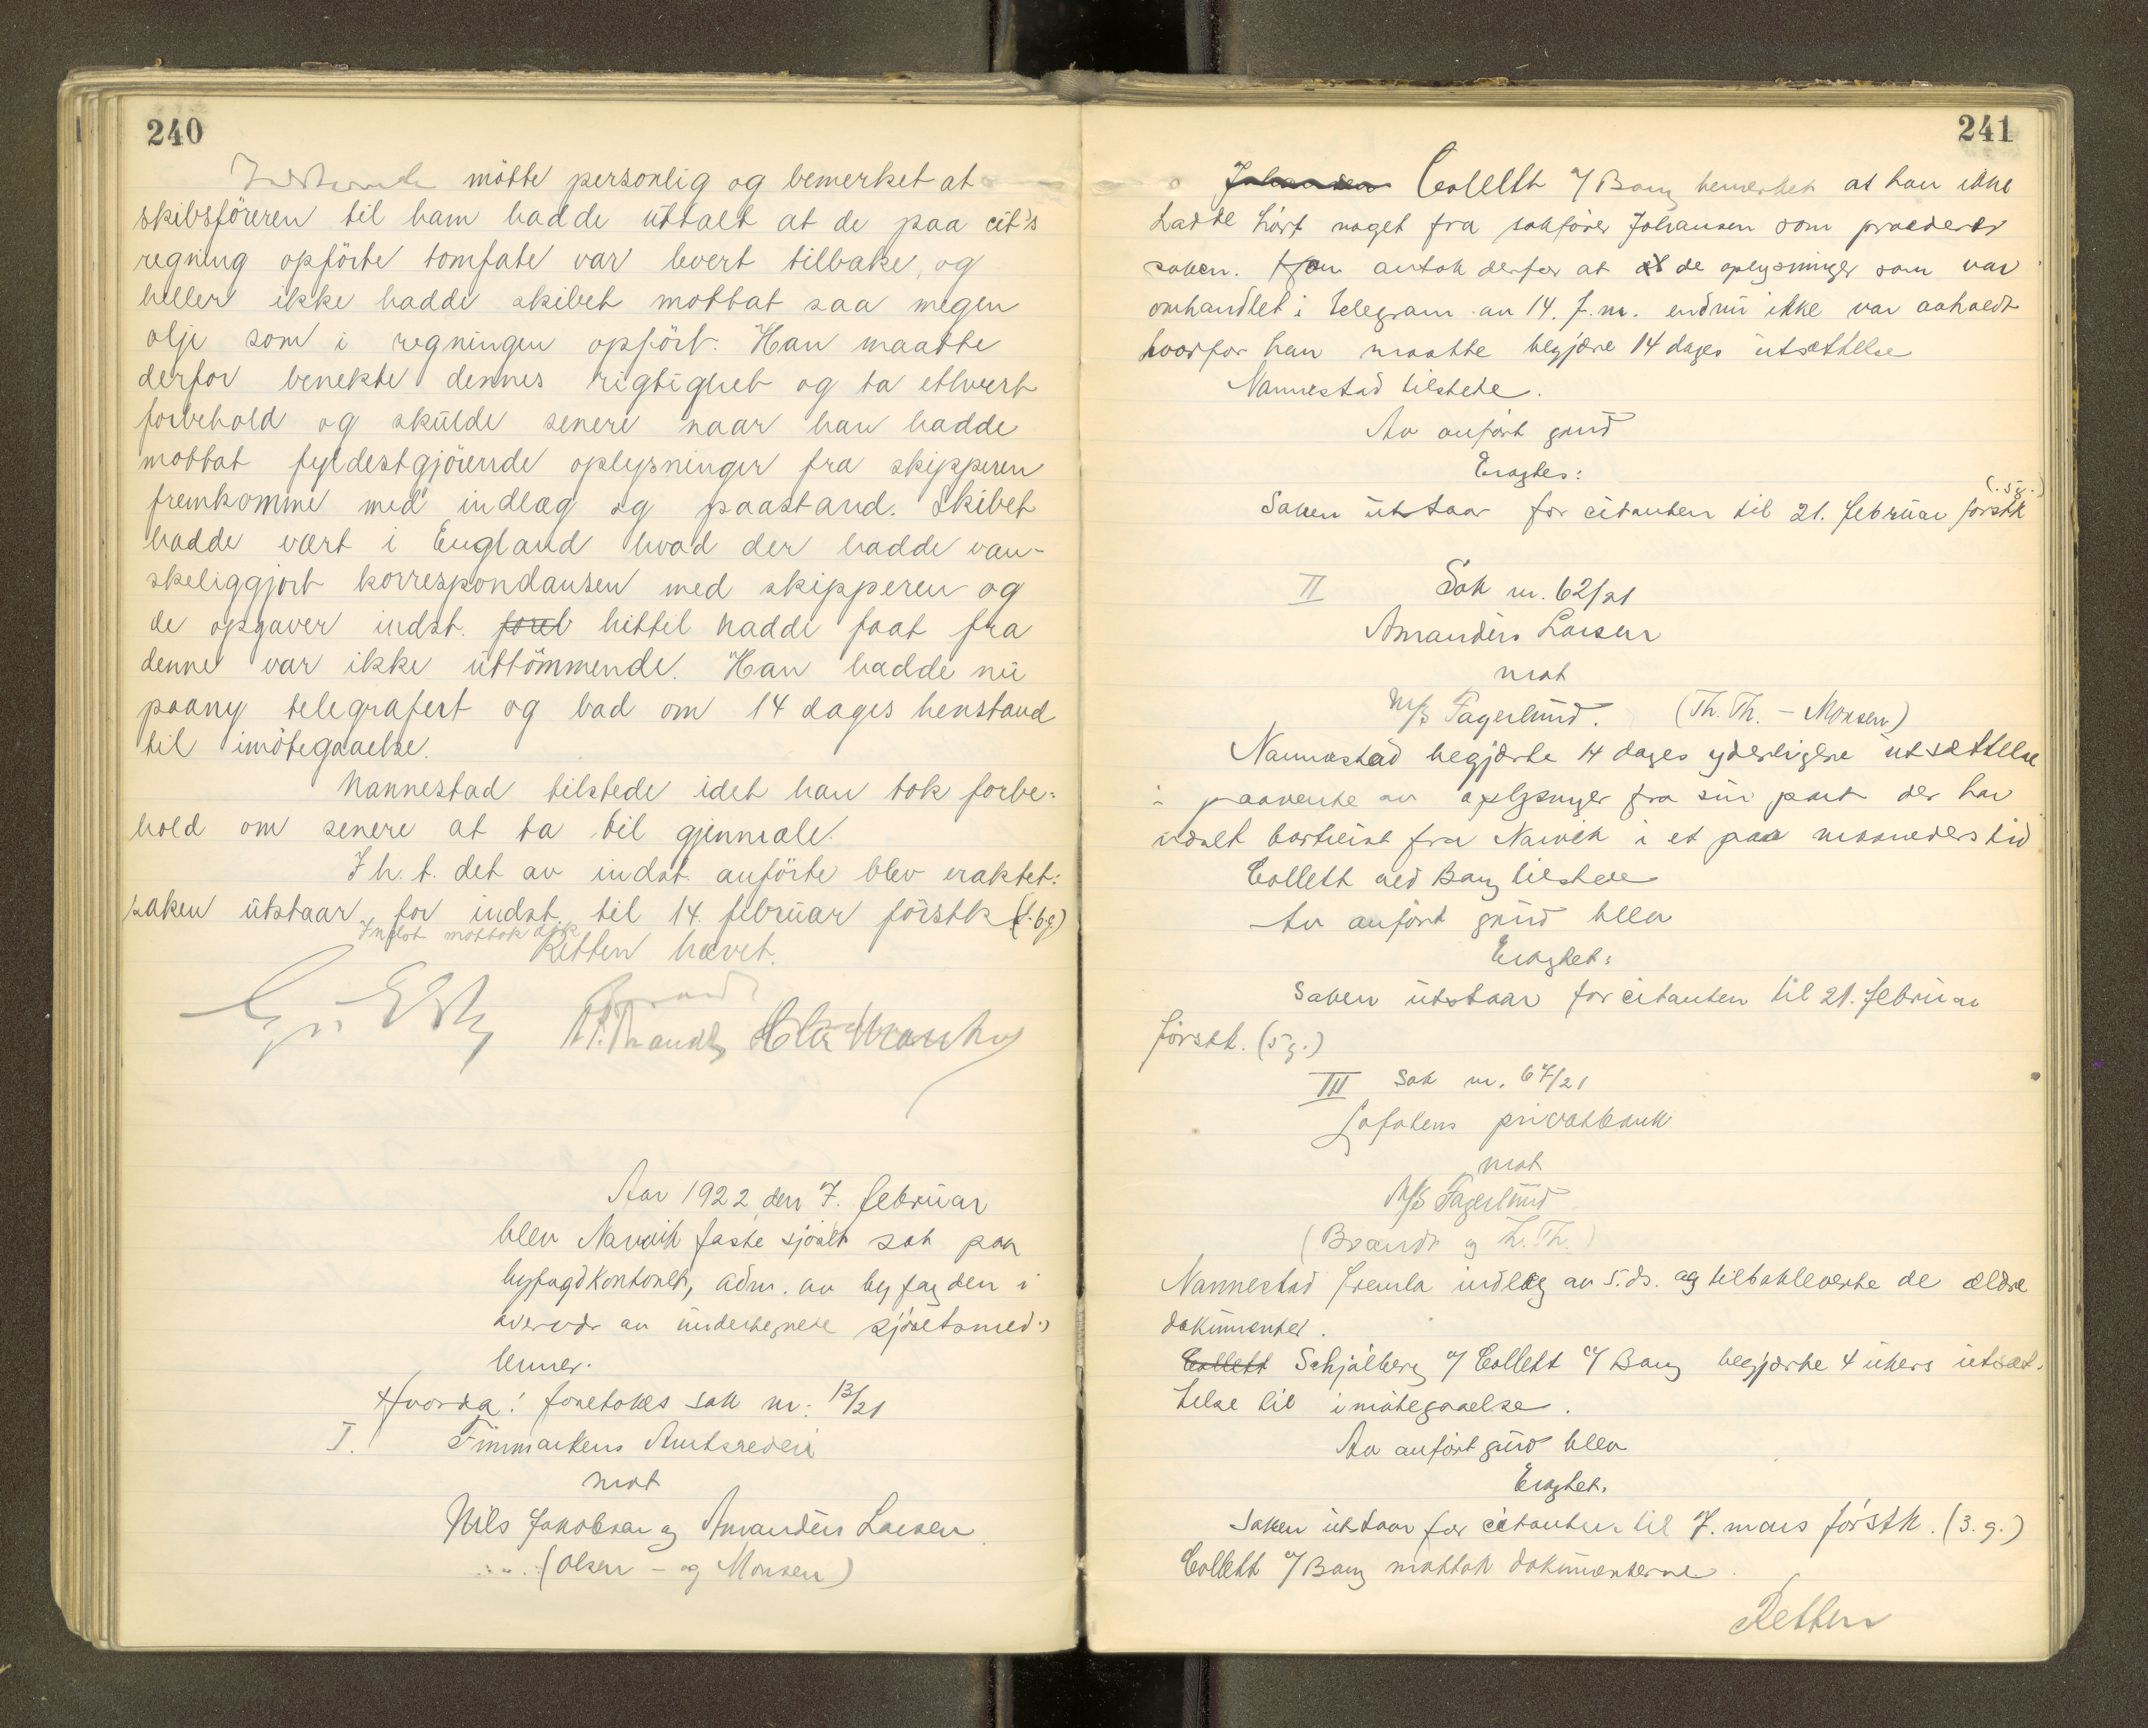 240
Indstevnte mötte personlig og bemerket at
skibsföreren til ham hadde uttalt at de paa cit's
regning opförte tomfate var levert tilbake, og
heller ikke hadde skibet mottat saa megen
olje som i regningen opfört. Han maatte
derfor benekte dennes rigtighet og ta ethvert
forbehold og skulde senere naar han hadde
mottat fyldestgjörende oplysninger fra skipperen
fremkomme med indlæg og paastand. Skibet
hadde vært i England hvad der hadde van-
skeliggjort korrespondansen med skipperen og
de opgaver indst. hittil hadde faat fra
denne var ikke uttömmende. Han hadde nu
paany telegrafert og bad om 14 dages henstand
til imötegaaelse.
Nannestad tilstede idet han tok forbe-
hold om senere at ta til gjenmæle.
I h. t. det av indst. anförte blev eraktet:
saken utstaar for indst. til 14. februar förstk (1. bg)
Indst mottok dok
Retten hævet.
Brandt
Aar 1922 den 7. februar
blev Narvik faste sjörett sat paa
byfogdkontoret, adm. av byfogden i
overvær av undertegnede sjöretsmed-
lemmer.
Hvorda: foretokes sak nr: 13/21
I. Finmarkens Amtsrederi
mot
Nils Jakobsen og Amandus Larsen
(Olsen - og Monsen)
241
Johansen Collett v/ Bang bemerket at han ikke
hadde hört noget fra sakförer Johansen som procederer
saken. Han antok derfor at de oplysninger som var
omhandlet i telegram av 14. f. m. endnu ikke var avholdt
hvorfor han maatte begjære 14 dages utsættelse
Nannestad tilstede.
Av anfört grund
Eragtes:
Saken utstaar for citanten til 21. februar förstk (5g.)
II Sak nr. 62/21
Amandus Larsen
mot
M/S Fagerlund. (Th. Th. - Monsen)
Nannestad begjærte 14 dages yderligere utsættelse
i paavente av oplysninger fra sin part der har
været bortreist fra Narvik i et par maaneders tid
Collett ved Bang tilstede
Av anfört grund blev
Eragtet:
Saken utstaar for citanten til 21. februar
förstk. (5 g.)
III Sak nr. 67/21
Lofotens privatbank
mot
M/S Fagerlund
(Brandt og Th. Th.)
Nannestad fremla indlæg av 5. ds. og tilbakleverte de ældre
dokumenter.
Collett Schjölberg v/ Collett v/ Bang begjærte 4 ukers utsæt-
telse til imötegaaelse.
Av anfört grund blev
Eragtet.
Saken utstaar for citanten til 7. mars förstk. (3. g.)
Collett v/ Bang mottok dokumenterne.
Retten